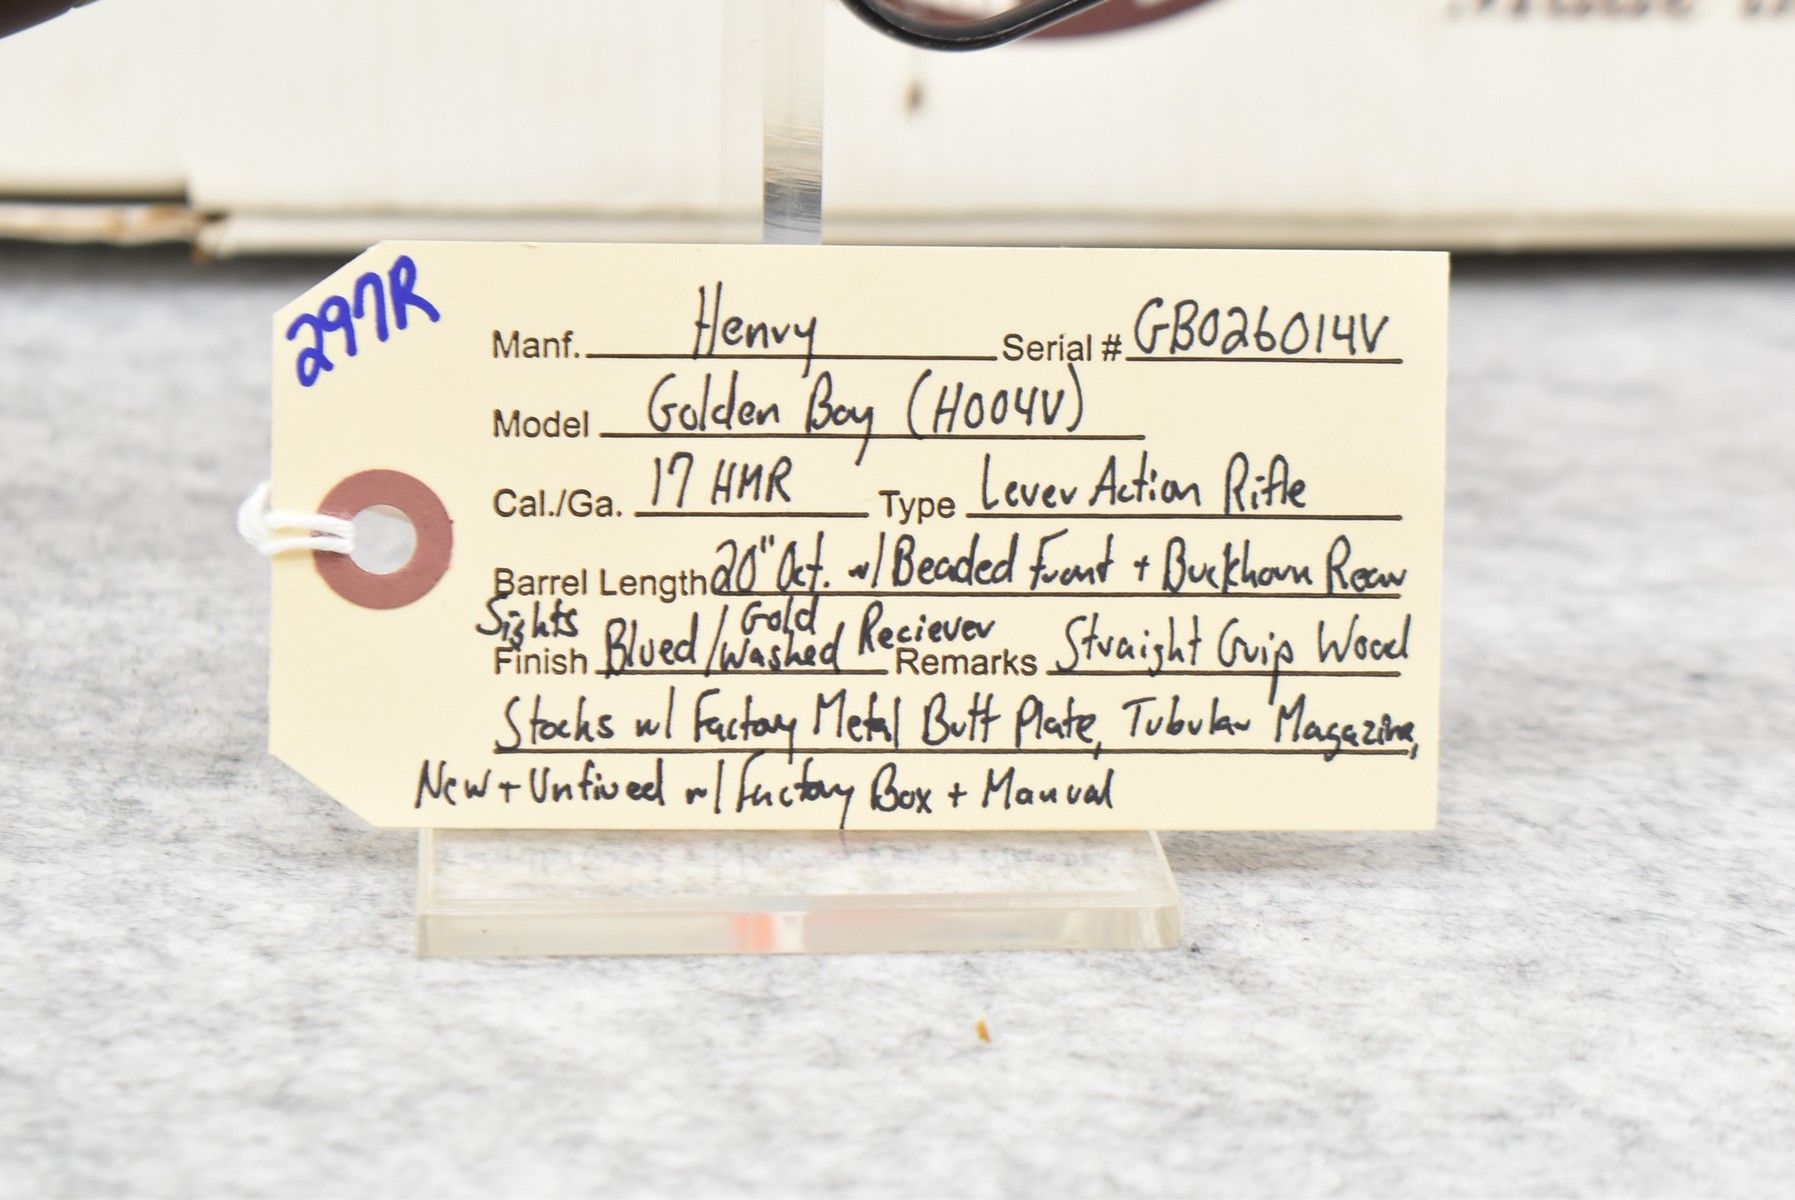 Made in
297R
Manf. Henry Serial # GB026014V
Model Golden Boy (H004V)
Cal./Ga. 17 HMR Type Lever Action Rifle
Barrel Length 20" Oct. w/ Beaded Front + Buckhorn Rear
Sights
Finish Blued / Gold Washed Reciever Remarks Straight Grip Wood
Stocks w/ Factory Metal Butt Plate, Tubular Magazine,
New + Unfired w/ Factory Box + Manual